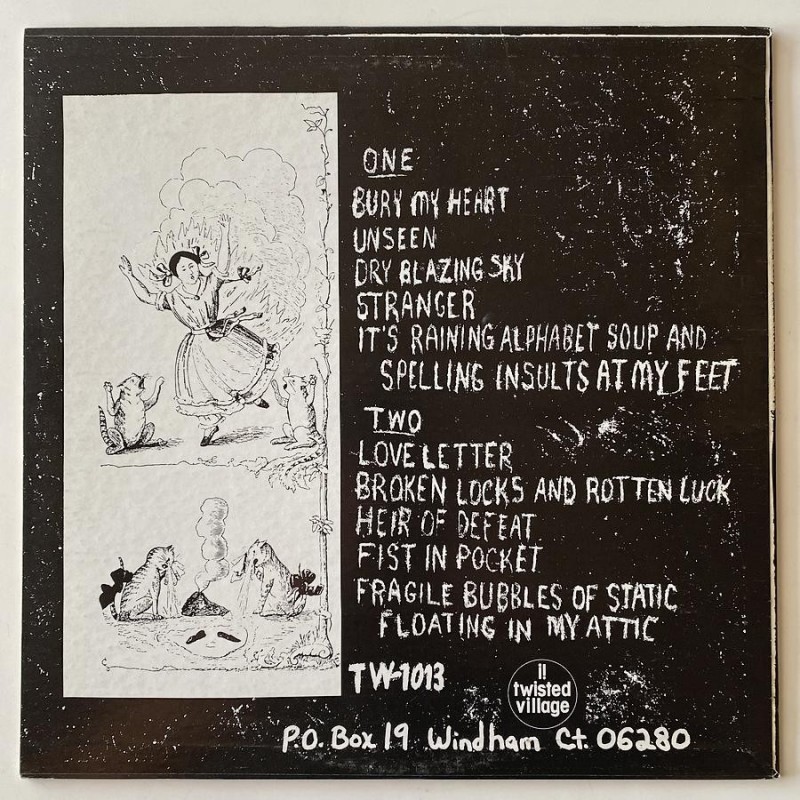 ONE
BURY MY HEART
UNSEEN
DRY BLAZING SKY
STRANGER
IT'S RAINING ALPHABET SOUP AND
SPELLING INSULTS AT MY FEET
TWO
LOVE LETTER
BROKEN LOCKS AND ROTTEN LUCK
HEIR OF DEFEAT
FIST IN POCKET
FRAGILE BUBBLES OF STATIC
FLOATING IN MY ATTIC
TW-1013
!!
twisted
village
P.O. Box 19 Windham Ct. 06280